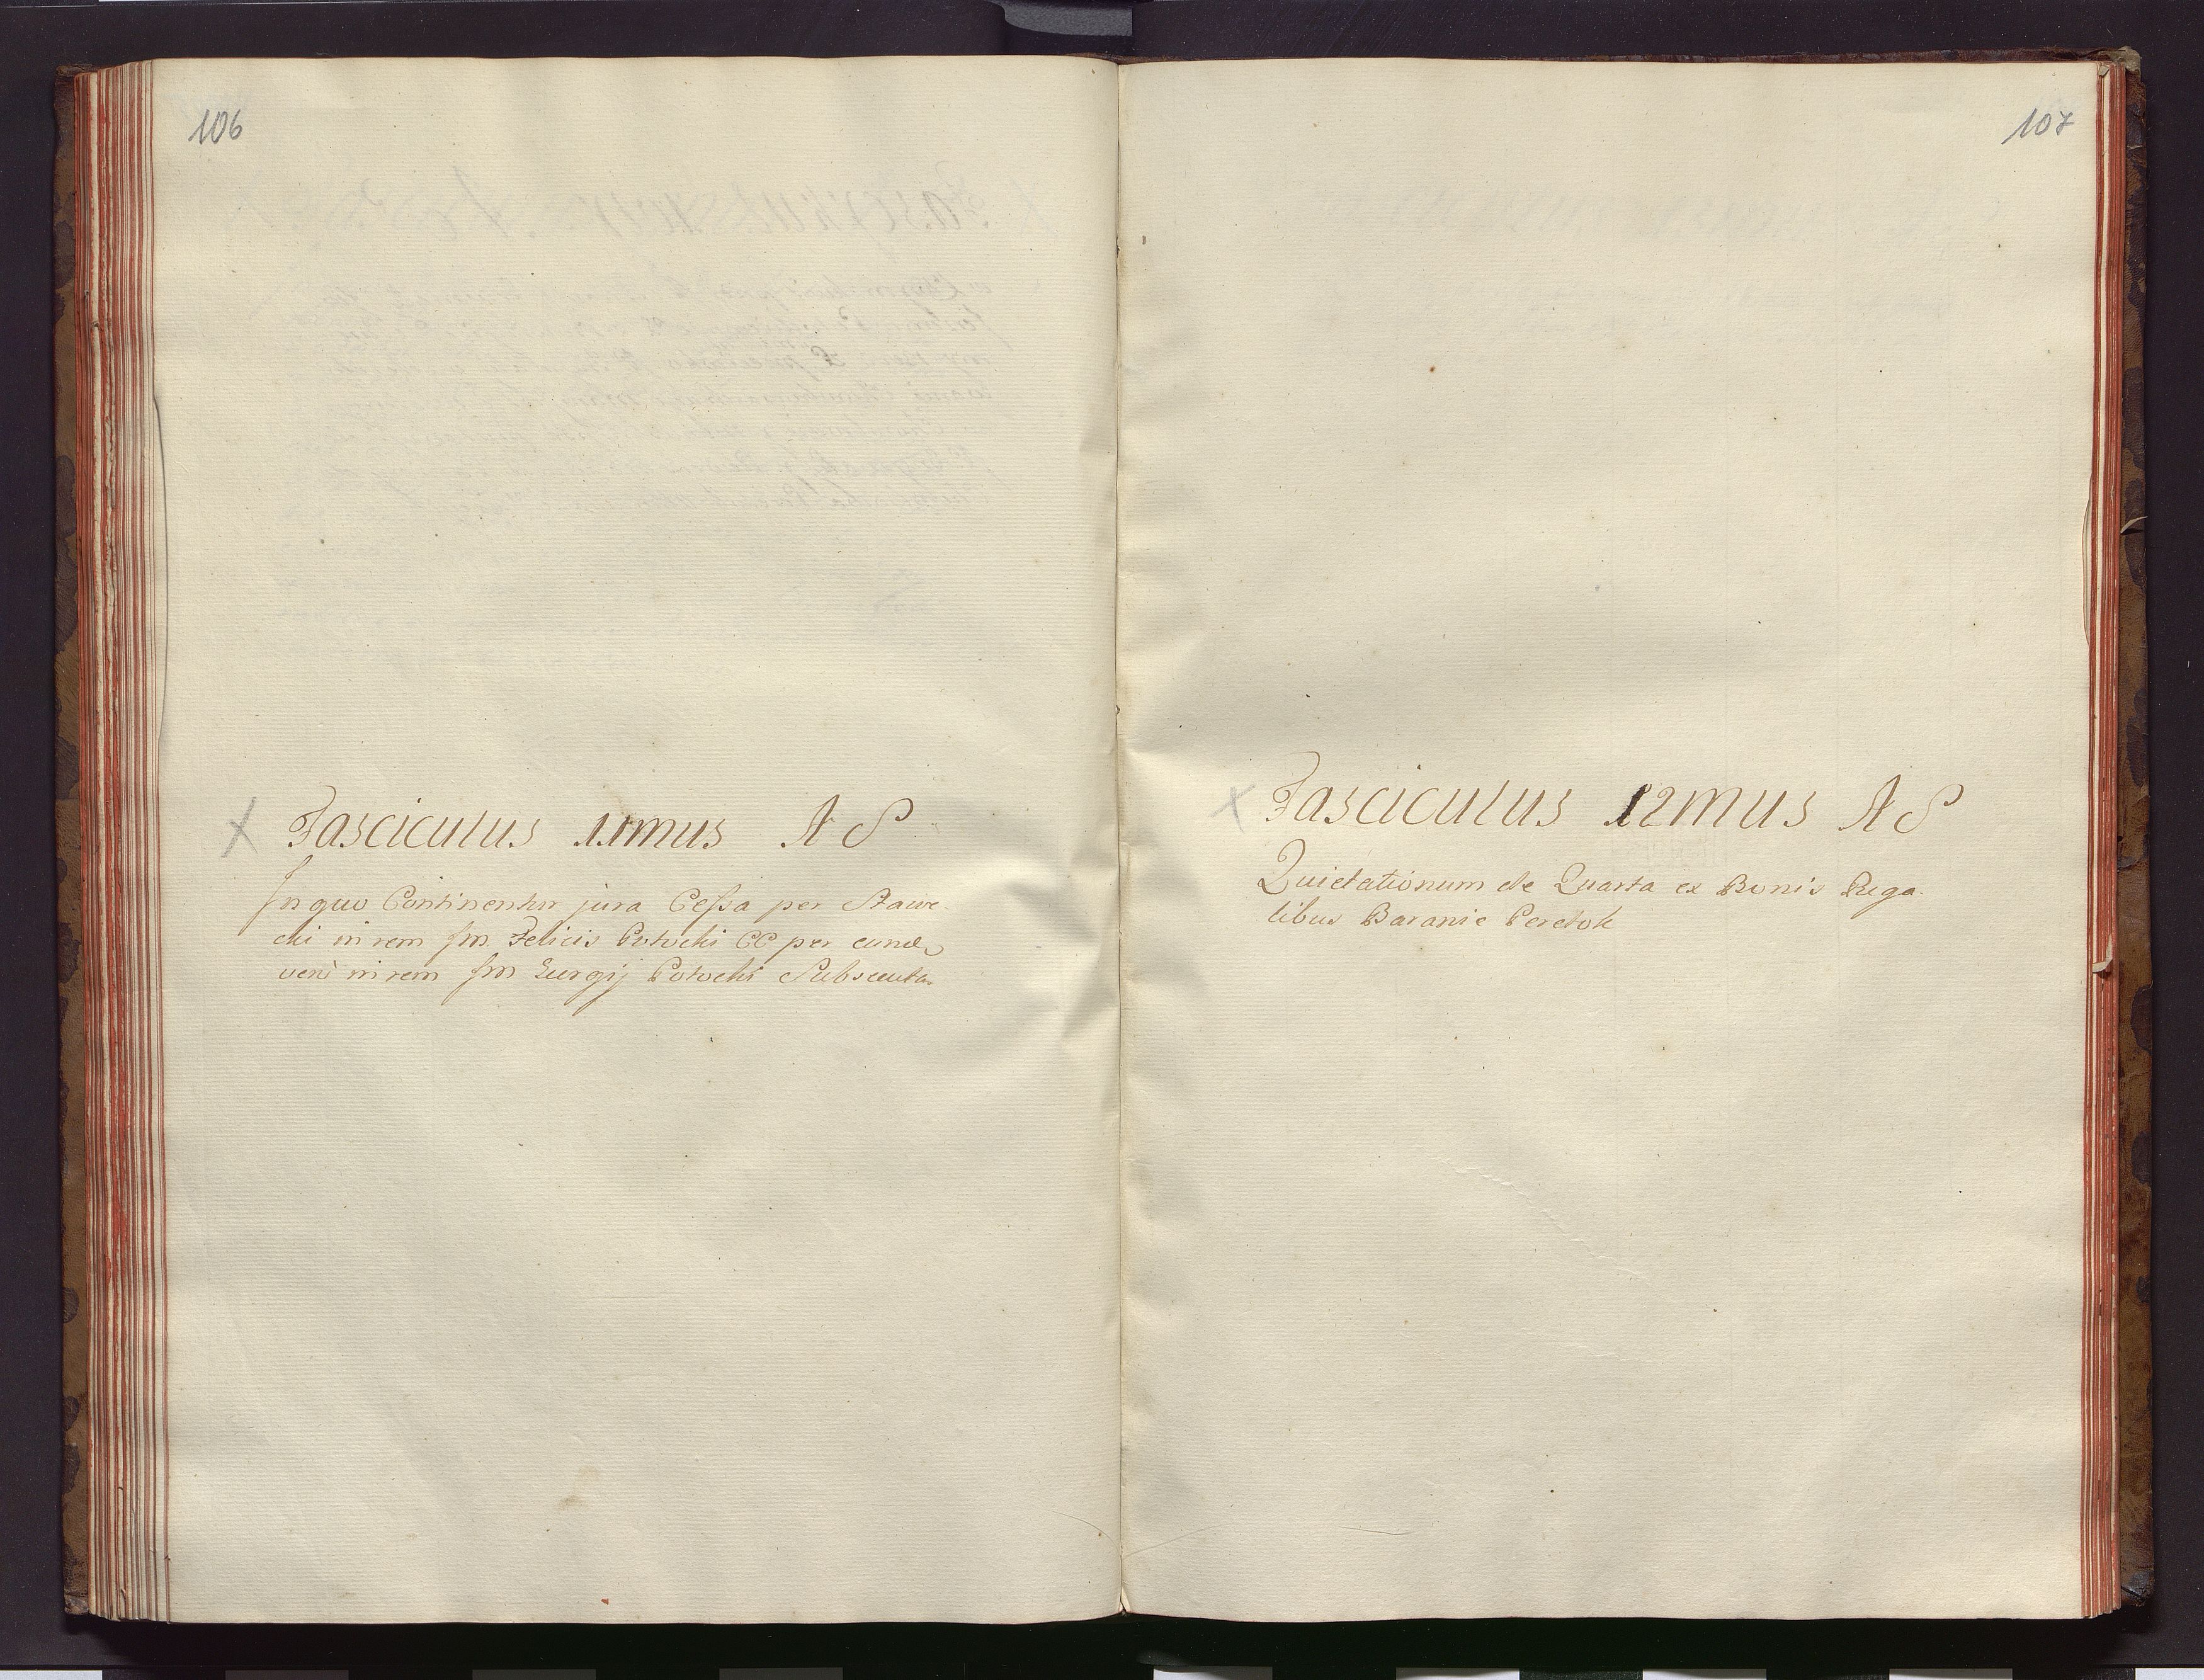 106
X Fasciculus 11mus A S
In quo Continentur jura Cessa per Stawe-
cki in rem Im. Felicis Potocki CC per eund
vero in rem Im Jurgij Potocki Subsecuta.
107
X Fasciculus 12mus A S
Quietationum de Quarta ex Bonis Rega-
libus Baranie Peretok